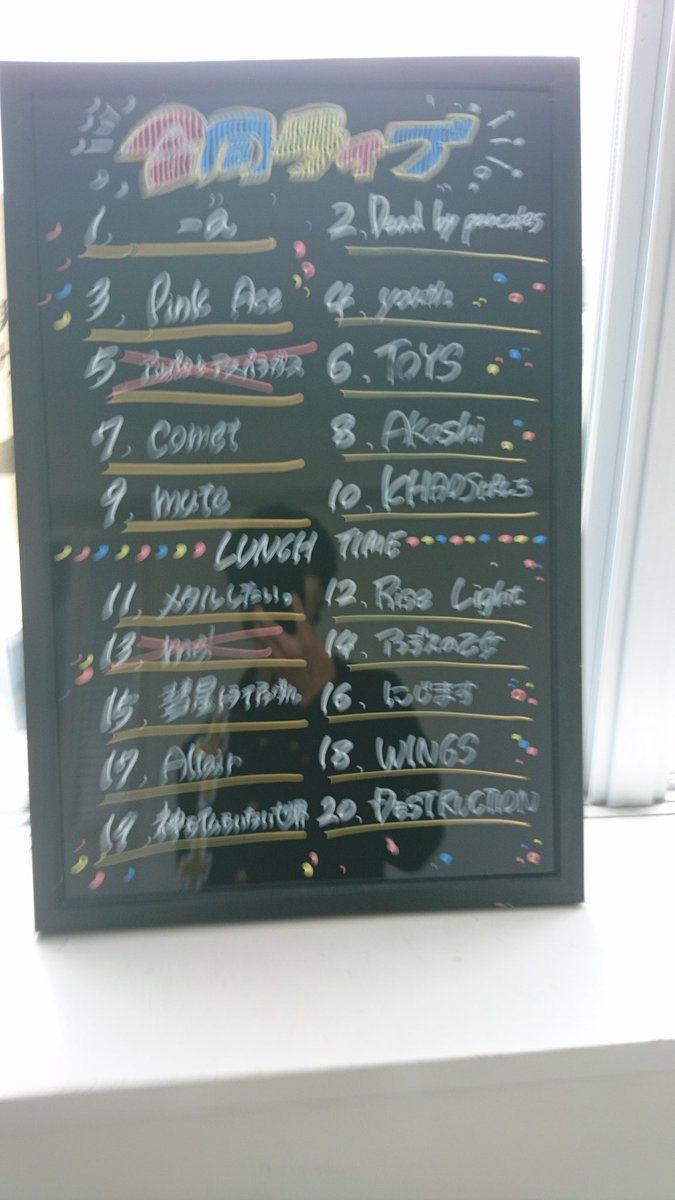 合同ライブ
1、
2、Dead by pancakes
3、Pink Ace
4、youth
5、
6、TOYS
7、comet
8、Akashi
9、mute
10、
LUNCH TIME
11、メタルしたい。
12、Rise Light
13、mel
14、アンデスの乙女
15、彗星
16、にじます
17、Altair
18、WINGS
19、神も仏もいない世界
20、DESTRUCTION